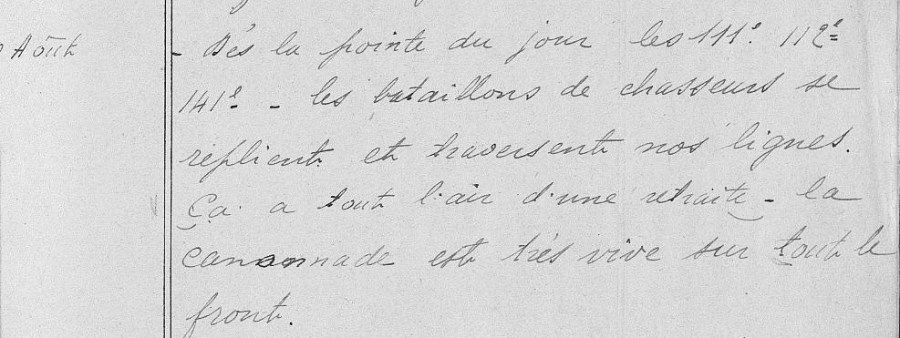 Août - Dès la pointe du jour les 111e. 112e=
141e - les bataillons de chasseurs se
replient et traversent nos lignes.
Ça a tout l'air d'une retraite - la
canonnade est très vive sur tout le
front.